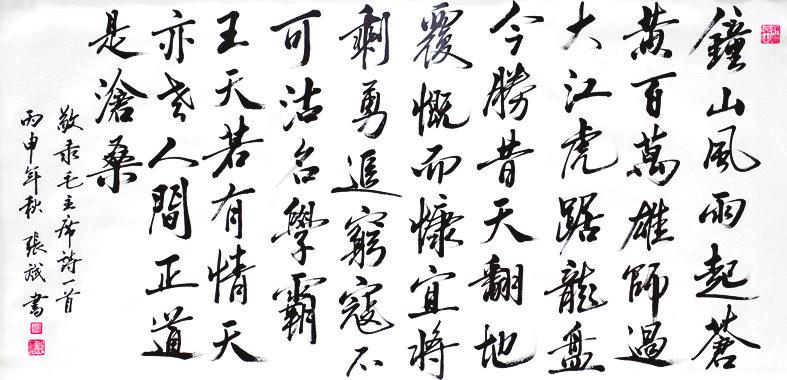 鐘山風雨起蒼
黃百萬雄師過
大江虎踞龍盤
今勝昔天翻地
覆慨而慷宜將
剩勇追窮寇不
可沽名學霸
王天若有情天
亦老人間正道
是滄桑
敬录毛主席詩一首
丙申年秋張斌書